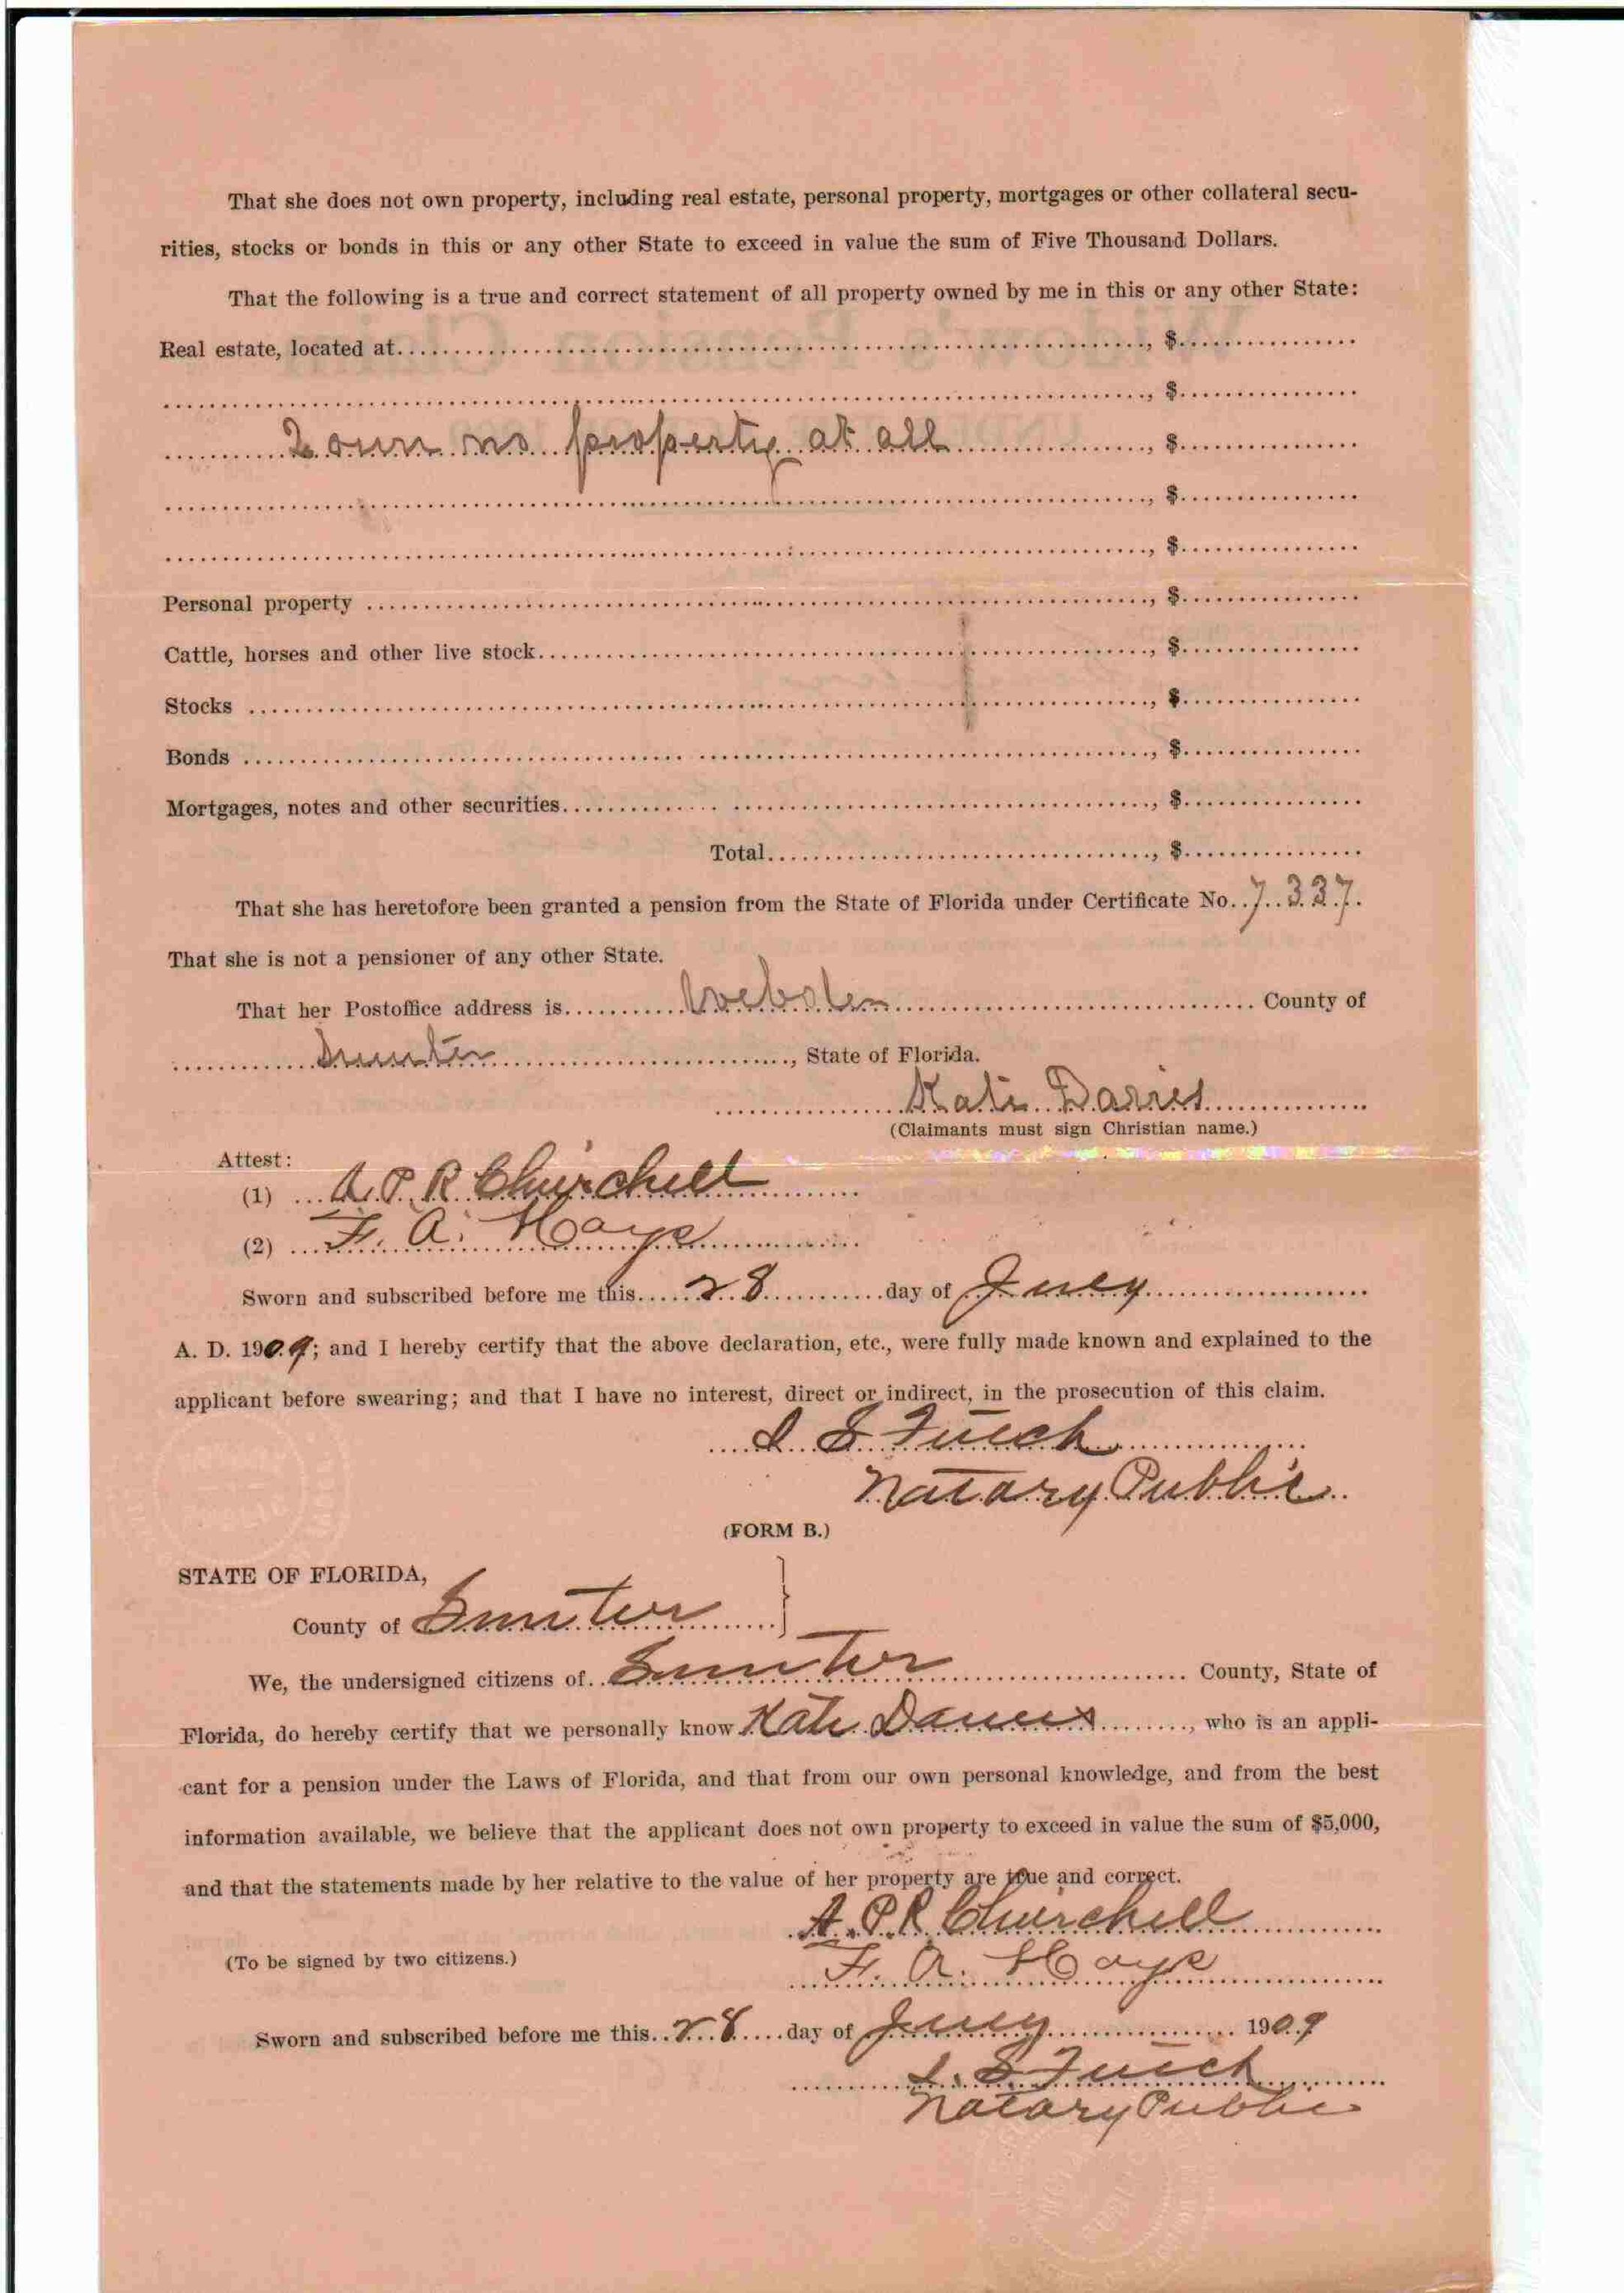 That she does not own property, including real estate, personal property, mortgages or other collateral secu-
rities, stocks or bonds in this or any other State to exceed in value the sum of Five Thousand Dollars.
That the following is a true and correct statement of all property owned by me in this or any other State:
Real estate, located at , $
, $
I own no property at all , $
, $
, $
Personal property , $
Cattle, horses and other live stock , $
Stocks , $
Bonds , $
Mortgages, notes and other securities , $
Total , $
That she has heretofore been granted a pension from the State of Florida under Certificate No. 7337.
That she is not a pensioner of any other State.
That her Postoffice address is Webster County of
Sumter , State of Florida.
Kate Davies
(Claimants must sign Christian name.)
Attest:
(1) A. P. R. Churchill
(2) F. A. Hays
Sworn and subscribed before me this 28 day of July
A. D. 1909; and I hereby certify that the above declaration, etc., were fully made known and explained to the
applicant before swearing; and that I have no interest, direct or indirect, in the prosecution of this claim.
Notary Public
(FORM B.)
STATE OF FLORIDA,
County of Sumter
We, the undersigned citizens of Sumter County, State of
Florida, do hereby certify that we personally know Kate Davies , who is an appli-
cant for a pension under the Laws of Florida, and that from our own personal knowledge, and from the best
information available, we believe that the applicant does not own property to exceed in value the sum of $5,000,
and that the statements made by her relative to the value of her property are true and correct.
A. P. R. Churchill
(To be signed by two citizens.)
F. A. Hays
Sworn and subscribed before me this 28 day of July 1909
Notary Public